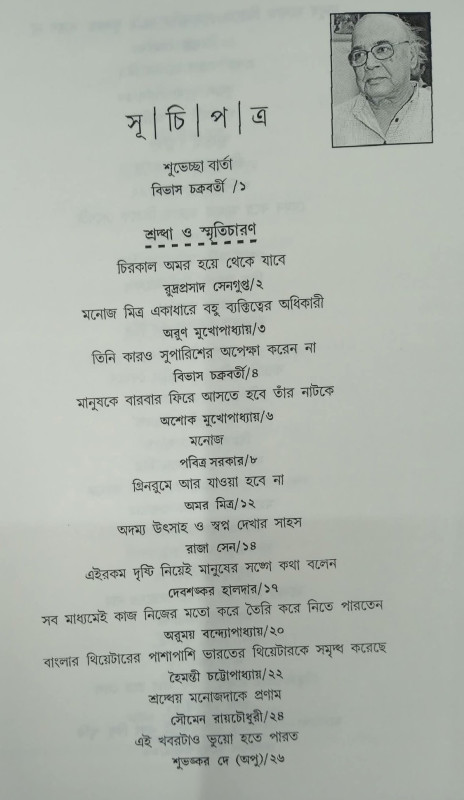 সূ | চি | প | ত্র
শুভেচ্ছা বার্তা
বিভাস চক্রবর্তী /১
শ্রদ্ধা ও স্মৃতিচারণ
চিরকাল অমর হয়ে থেকে যাবে
রুদ্রপ্রসাদ সেনগুপ্ত/২
মনোজ মিত্র একাধারে বহু ব্যক্তিত্বের অধিকারী
অরুণ মুখোপাধ্যায়/৩
তিনি কারও সুপারিশের অপেক্ষা করেন না
বিভাস চক্রবর্তী/৪
মানুষকে বারবার ফিরে আসতে হবে তাঁর নাটকে
অশোক মুখোপাধ্যায়/৬
মনোজ
পবিত্র সরকার/৮
গ্রিনরুমে আর যাওয়া হবে না
অমর মিত্র/১২
অদম্য উৎসাহ ও স্বপ্ন দেখার সাহস
রাজা সেন/১৪
এইরকম দৃষ্টি নিয়েই মানুষের সঙ্গে কথা বলেন
দেবশঙ্কর হালদার/১৭
সব মাধ্যমেই কাজ নিজের মতো করে তৈরি করে নিতে পারতেন
অরুময় বন্দ্যোপাধ্যায়/২০
বাংলার থিয়েটারের পাশাপাশি ভারতের থিয়েটারকে সমৃদ্ধ করেছে
হৈমন্তী চট্টোপাধ্যায়/২২
শ্রদ্ধেয় মনোজদাকে প্রণাম
সৌমেন রায়চৌধুরী/২৪
এই খবরটাও ভুয়ো হতে পারত
শুভঙ্কর দে (অপু)/২৬